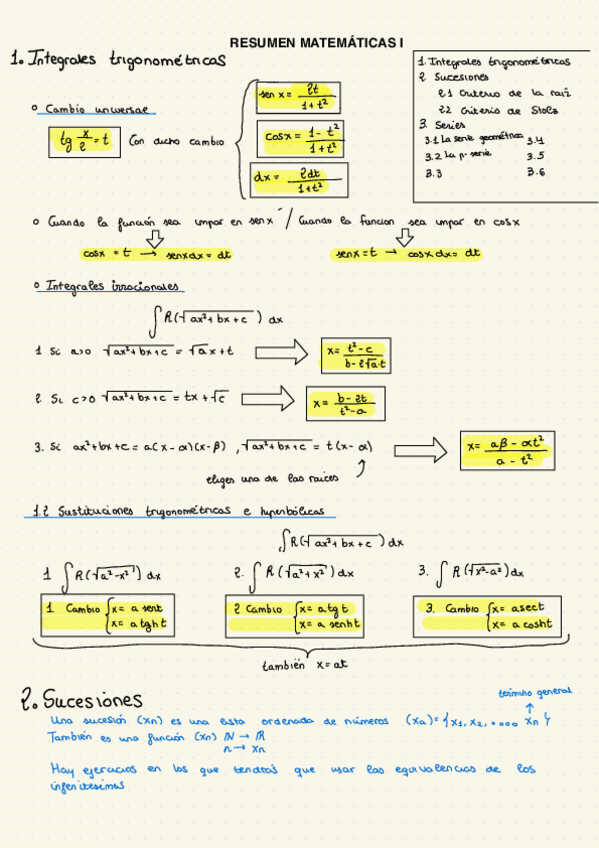 RESUMEN MATEMÁTICAS I
1. Integrales trigonométricas
1. Integrales trigonométricas
2 Sucesiones
2.1 Criterio de la raíz
2.2 Criterio de Stolz
3. Series
3.1 La serie geométrica 3.4
3.2 La p-serie 3.5
3.3 3.6
o Cambio universal
tg x/2 = t Con dicho cambio
sen x = 2t/(1+t²)
cos x = (1-t²)/(1+t²)
dx = 2dt/(1+t²)
o Cuando la función sea impar en sen x / Cuando la funcion sea impar en cos x
cosx = t → senxdx = dt senx = t → cosxdx = dt
o Integrales irracionales
∫ R(√(ax²+bx+c)) dx
1 Si a>0 √(ax²+bx+c) = √a x + t ⇒ x = (t²-c)/(b-2√a t)
2. Si c>0 √(ax²+bx+c) = tx + √c ⇒ x = (b-2t)/(t²-a)
3. Si ax²+bx+c = a(x-α)(x-β), √(ax²+bx+c) = t(x-α) ⇒ x = (aβ-αt²)/(a-t²)
eliges una de las raices
1.2 Sustituciones trigonométricas e hiperbólicas
∫ R(√(ax²+bx+c)) dx
1 ∫ R(√(a²-x²)) dx 2. ∫ R(√(a²+x²)) dx 3. ∫ R(√(x²-a²)) dx
1 Cambio { x = a sent 2 Cambio { x = a tg t 3. Cambio { x = a sect
x = a tgh t x = a senht x = a cosht
también x = at
2. Sucesiones
término general
Una sucesión (xn) es una lista ordenada de números (xa) = {x1, x2, .... xn}
También es una función (xn) ℕ → ℝ
n → xn
Hay ejercicios en los que tendrás que usar las equivalencias de los
infinitesimos